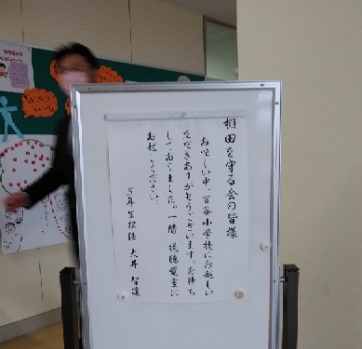 棚田を守る会の皆様
お忙しい中、百谷小学校にお越しい
ただきありがとうございます。お待ち
しておりました。一階 視聴覚室に
お越しください。
5年生担任 大井